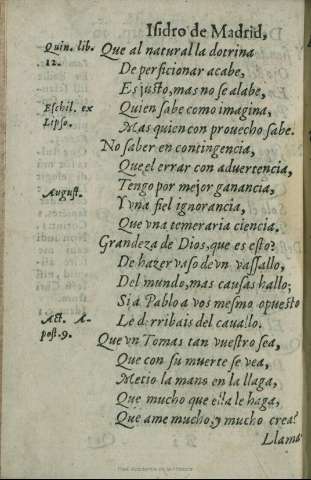 Isidro de Madrid,
Quin. lib.
12.
Que al natural la dotrina
De perficionar acabe,
Es justo, mas no se alabe,
Eschil. ex
Lipso.
Quien sabe como imagina,
Mas quien con prouecho sabe.
No saber en contingencia,
Que el errar con aduertencia,
August.
Tengo por mejor ganancia,
Y vna fiel ignorancia,
Que vna temeraria ciencia.
Grandeza de Dios, que es esto?
De hazer vaso de vn vassallo,
Del mundo, mas causas hallo;
Si a Pablo a vos mesmo opuesto
Act. A-
post. 9.
Le derribais del cauallo.
Que vn Tomas tan vuestro sea,
Que con su muerte se vea,
Metio la mano en la llaga,
Que mucho que ella le haga,
Que ame mucho, y mucho crea?
Llama